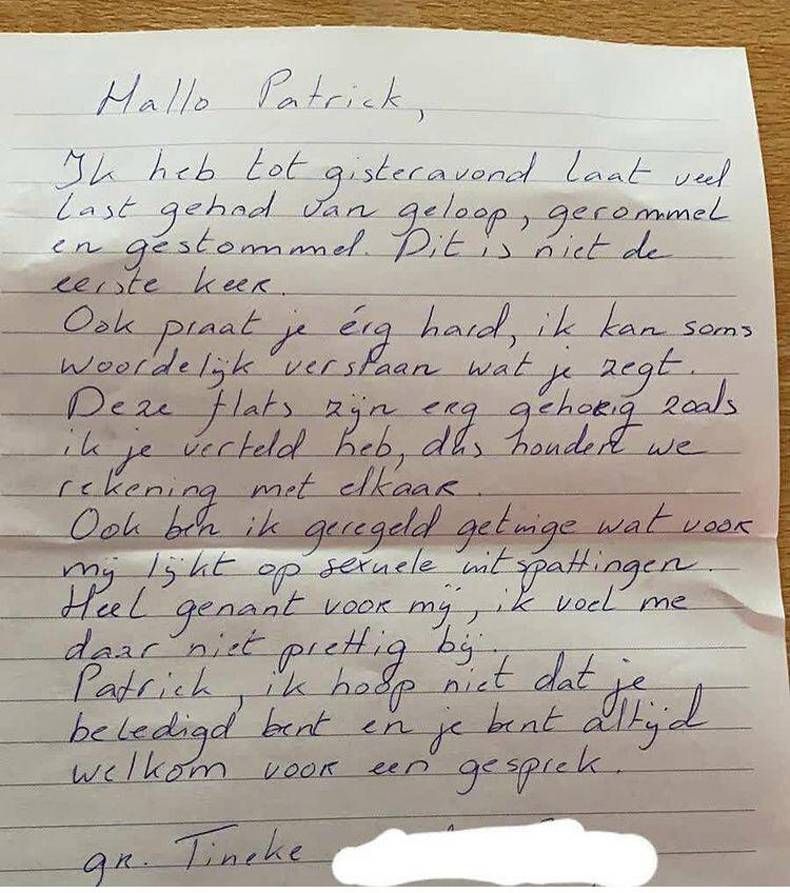 Hallo Patrick,
Ik heb tot gisteravond laat veel
last gehad van geloop, gerommel
en gestommel. Dit is niet de
eerste keer.
Ook praat je érg hard, ik kan soms
woordelijk verstaan wat je zegt.
Deze flats zijn erg gehorig zoals
ik je verteld heb, dus houden we
rekening met elkaar.
Ook ben ik geregeld getuige wat voor
mij lijkt op sexuele uitspattingen.
Heel genant voor mij, ik voel me
daar niet prettig bij.
Patrick, ik hoop niet dat je
beledigd bent en je bent altijd
welkom voor een gesprek.
gr. Tineke